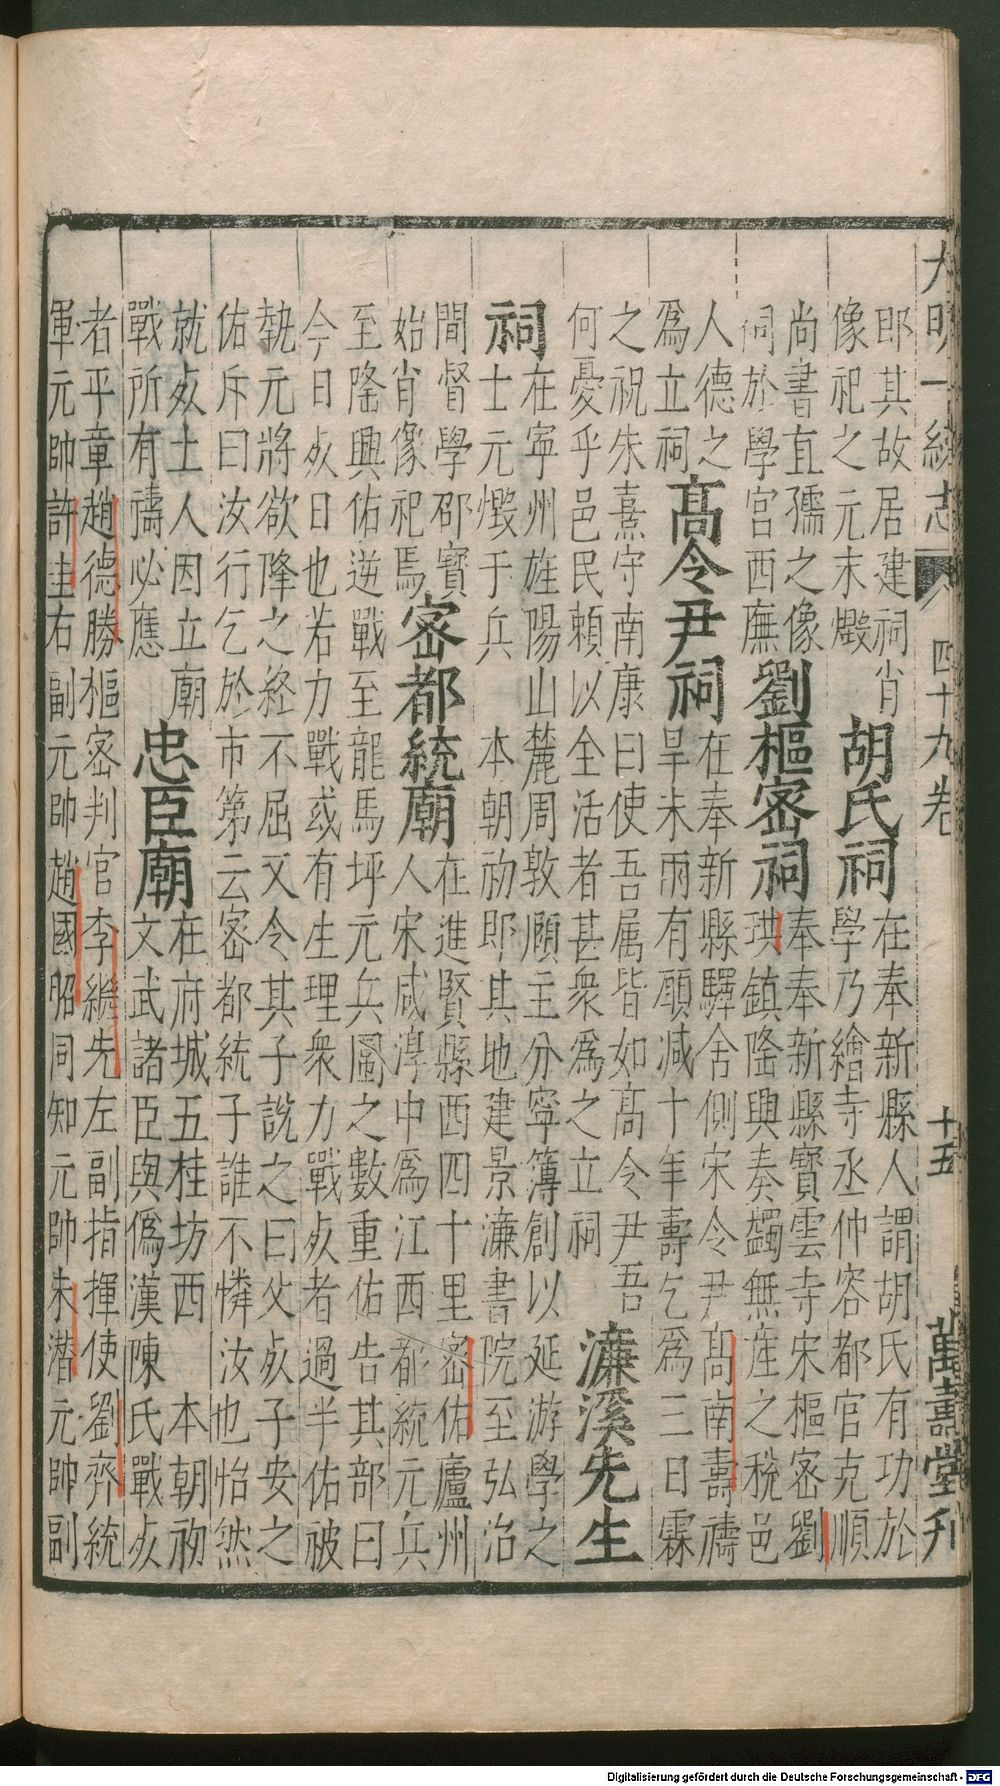 大明一統志 四十九卷 十五 萬壽堂刋
郎其故居建祠肖
像祀之元末燬
胡氏祠
在奉新縣人謂胡氏有功於
學乃繪寺丞仲容都官克順
尚書直孺之像
祠於學宮西廡
劉樞宻祠
奉奉新縣寳雲寺宋樞宻劉
珙鎮隆興奏蠲無產之稅邑
人德之
爲立祠
髙令尹祠
在奉新縣驛舍側宋令尹髙南壽禱
旱未雨有願减十年壽乞爲三日霖
之祝朱熹守南康曰使吾属皆如髙令尹吾
何憂乎邑民頼以全活者甚衆爲之立祠
濂溪先生
祠
在寧州旌陽山麓周敦頤主分寧簿創以延游學之
士元燬于兵 本朝初即其地建景濂書院至弘治
間督學邵寳
始肖像祀焉
宻都統廟
在進賢縣西四十里宻佑廬州
人宋咸淳中爲江西都統元兵
至隆興佑逆戰至龍馬坪元兵圍之數重佑告其部曰
今日𣦸日也若力戰或有生理衆力戰𣦸者過半佑被
執元將欲降之終不屈又令其子說之曰父𣦸子安之
佑斥曰汝行乞於市第云宻都統子誰不憐汝也怡然
就𣦸土人因立廟
戰所有禱必應
忠臣廟
在府城五桂坊西 本朝初
文武諸臣與僞漢陳氏戰𣦸
者平章趙德勝樞宻判官李繼先左副指揮使劉齊統
軍元帥許圭右副元帥趙國昭同知元帥朱潜元帥副
Digitalisierung gefördert durch die Deutsche Forschungsgemeinschaft - DFG